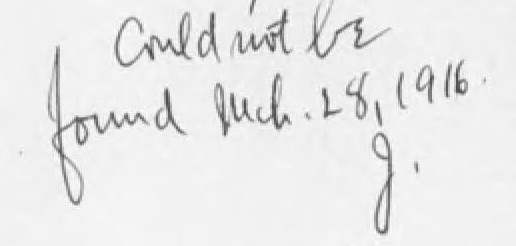 Could not be
found Mch. 28, 1916.
J.